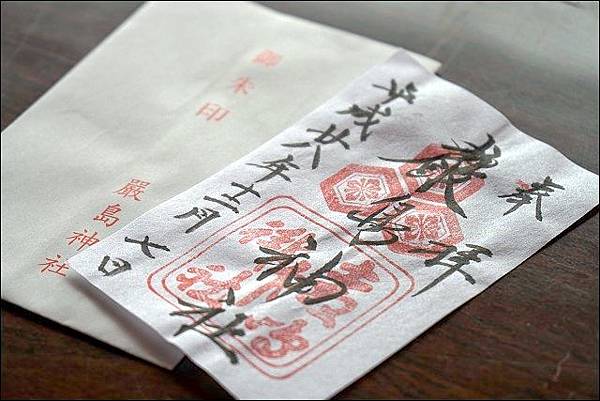 奉拝
嚴島神社
平成廿六年十二月
七日
御朱印
嚴島神社